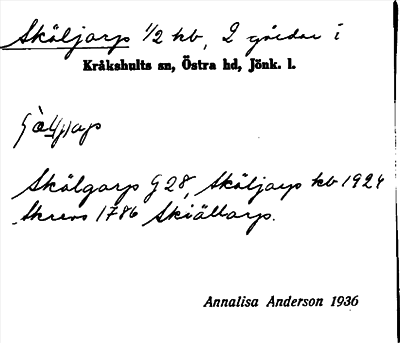 Sköljarp 1/2 kb, 2 gårdar i
Kråkshults sn, Östra hd, Jönk. l.
Skölgarp G 28, Sköljarp kb 1924
Skrevs 1786 Skiällarp.
Annalisa Anderson 1936